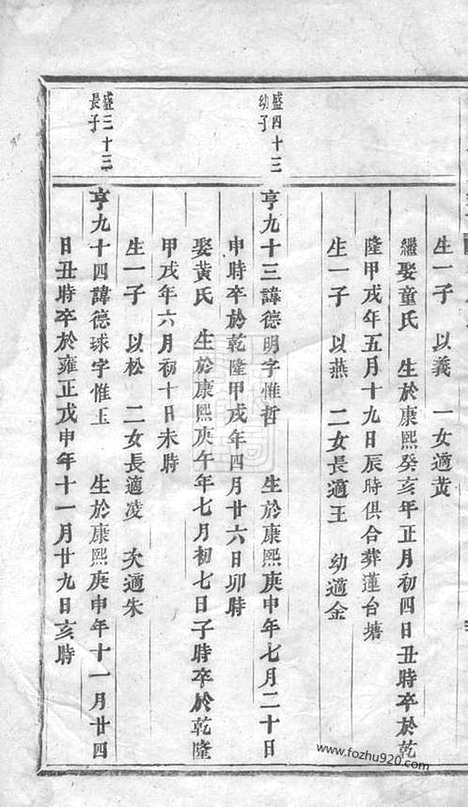 生一子 以義 一女適黄
繼娶童氏 生於康熙癸亥年正月初四日丑時卒於乾
隆甲戌年五月十九日辰時俱合葬蓮台塘
生一子 以燕 二女長適王 幼適金
盛四十三
幼子
亨九十三諱德明字惟哲 生於康熙庚申年七月二十日
申時卒於乾隆甲戌年四月廿六日卯時
娶黄氏 生於康熙庚午年七月初七日子時卒於乾隆
甲戌年六月初十日未時
生一子 以松 二女長適凌 次適朱
盛三十三
長子
亨九十四諱德球字惟玉 生於康熙庚申年十一月廿四
日丑時卒於雍正戊申年十一月廿九日亥時
www.fozhu920.com